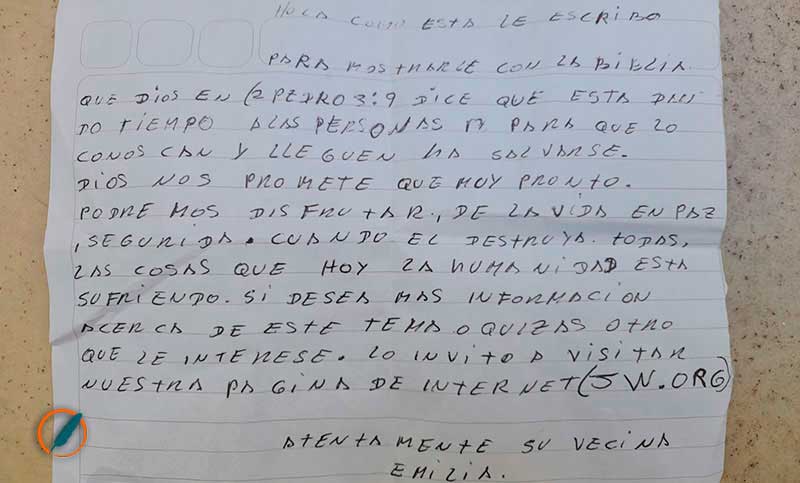 HOLA COMO ESTA LE ESCRIBO
PARA MOSTRARLE CON LA BIBLIA.
QUE DIOS EN (2 PEDRO 3:9 DICE QUE ESTA DAN
DO TIEMPO A LAS PERSONAS PARA QUE LO
CONOSCAN Y LLEGUEN HA SALVARSE.
DIOS NOS PROMETE QUE MUY PRONTO.
PODREMOS DISFRUTAR., DE LA VIDA EN PAZ
,SEGURIDA. CUANDO EL DESTRUYA. TODAS,
LAS COSAS QUE HOY LA HUMANIDAD ESTA
SUFRIENDO. SI DESEA MAS INFORMACION
ACERCA DE ESTE TEMA O QUIZAS OTRO
QUE LE INTERESE. LO INVITO A VISITAR
NUESTRA PAGINA DE INTERNET (JW.ORG)
ATENTAMENTE SU VECINA
EMILIA.